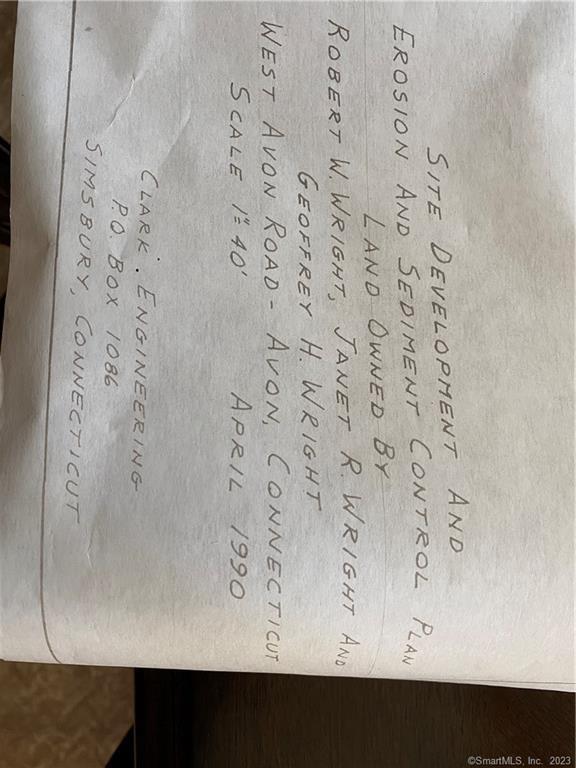 SITE DEVELOPMENT AND
EROSION AND SEDIMENT CONTROL PLAN
LAND OWNED BY
ROBERT W. WRIGHT, JANET R. WRIGHT AND
GEOFFREY H. WRIGHT
WEST AVON ROAD - AVON, CONNECTICUT
SCALE 1"=40' APRIL 1990
CLARK ENGINEERING
P.O. BOX 1086
SIMSBURY, CONNECTICUT
©SmartMLS, Inc. 2023